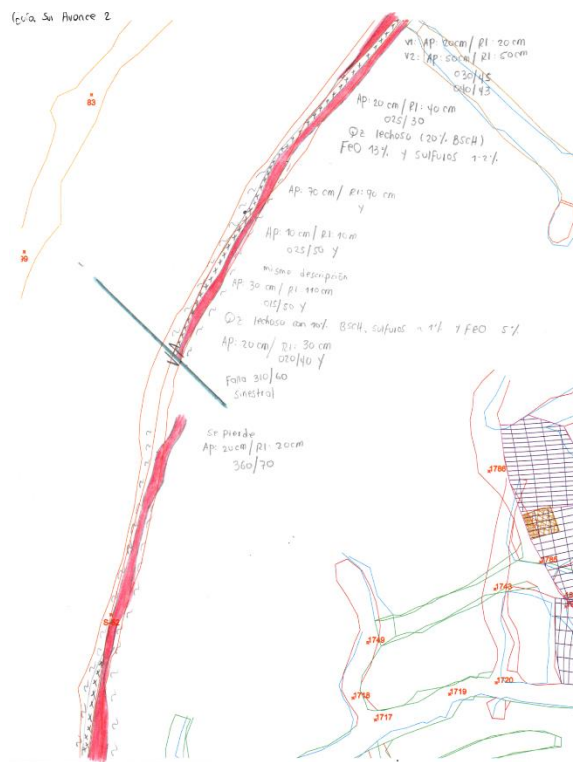 Guía Sn Avance 2
V1: AP: 20cm / R1: 20cm
V2: AP: 50cm / R1: 50cm
030/45
040/43
AP: 20 cm / R1: 40 cm
025/30
Qz lechoso (20% BScH)
FeO 13% y sulfuros 1-2%
AP: 70 cm / R1: 90 cm
Y
AP: 10 cm / R1: 10m
025/50 Y
misma descripción
AP: 30 cm / R1: 110cm
015/50 Y
Qz lechoso con 10% BScH, sulfuros 1% y FeO 5%
AP: 20cm / R1: 30 cm
020/40 Y
Falla 310/60
sinestral
se pierde
AP: 20cm / R1: 20cm
360/70
83
99
1786
1785
1743
1749
1720
1719
1718
1717